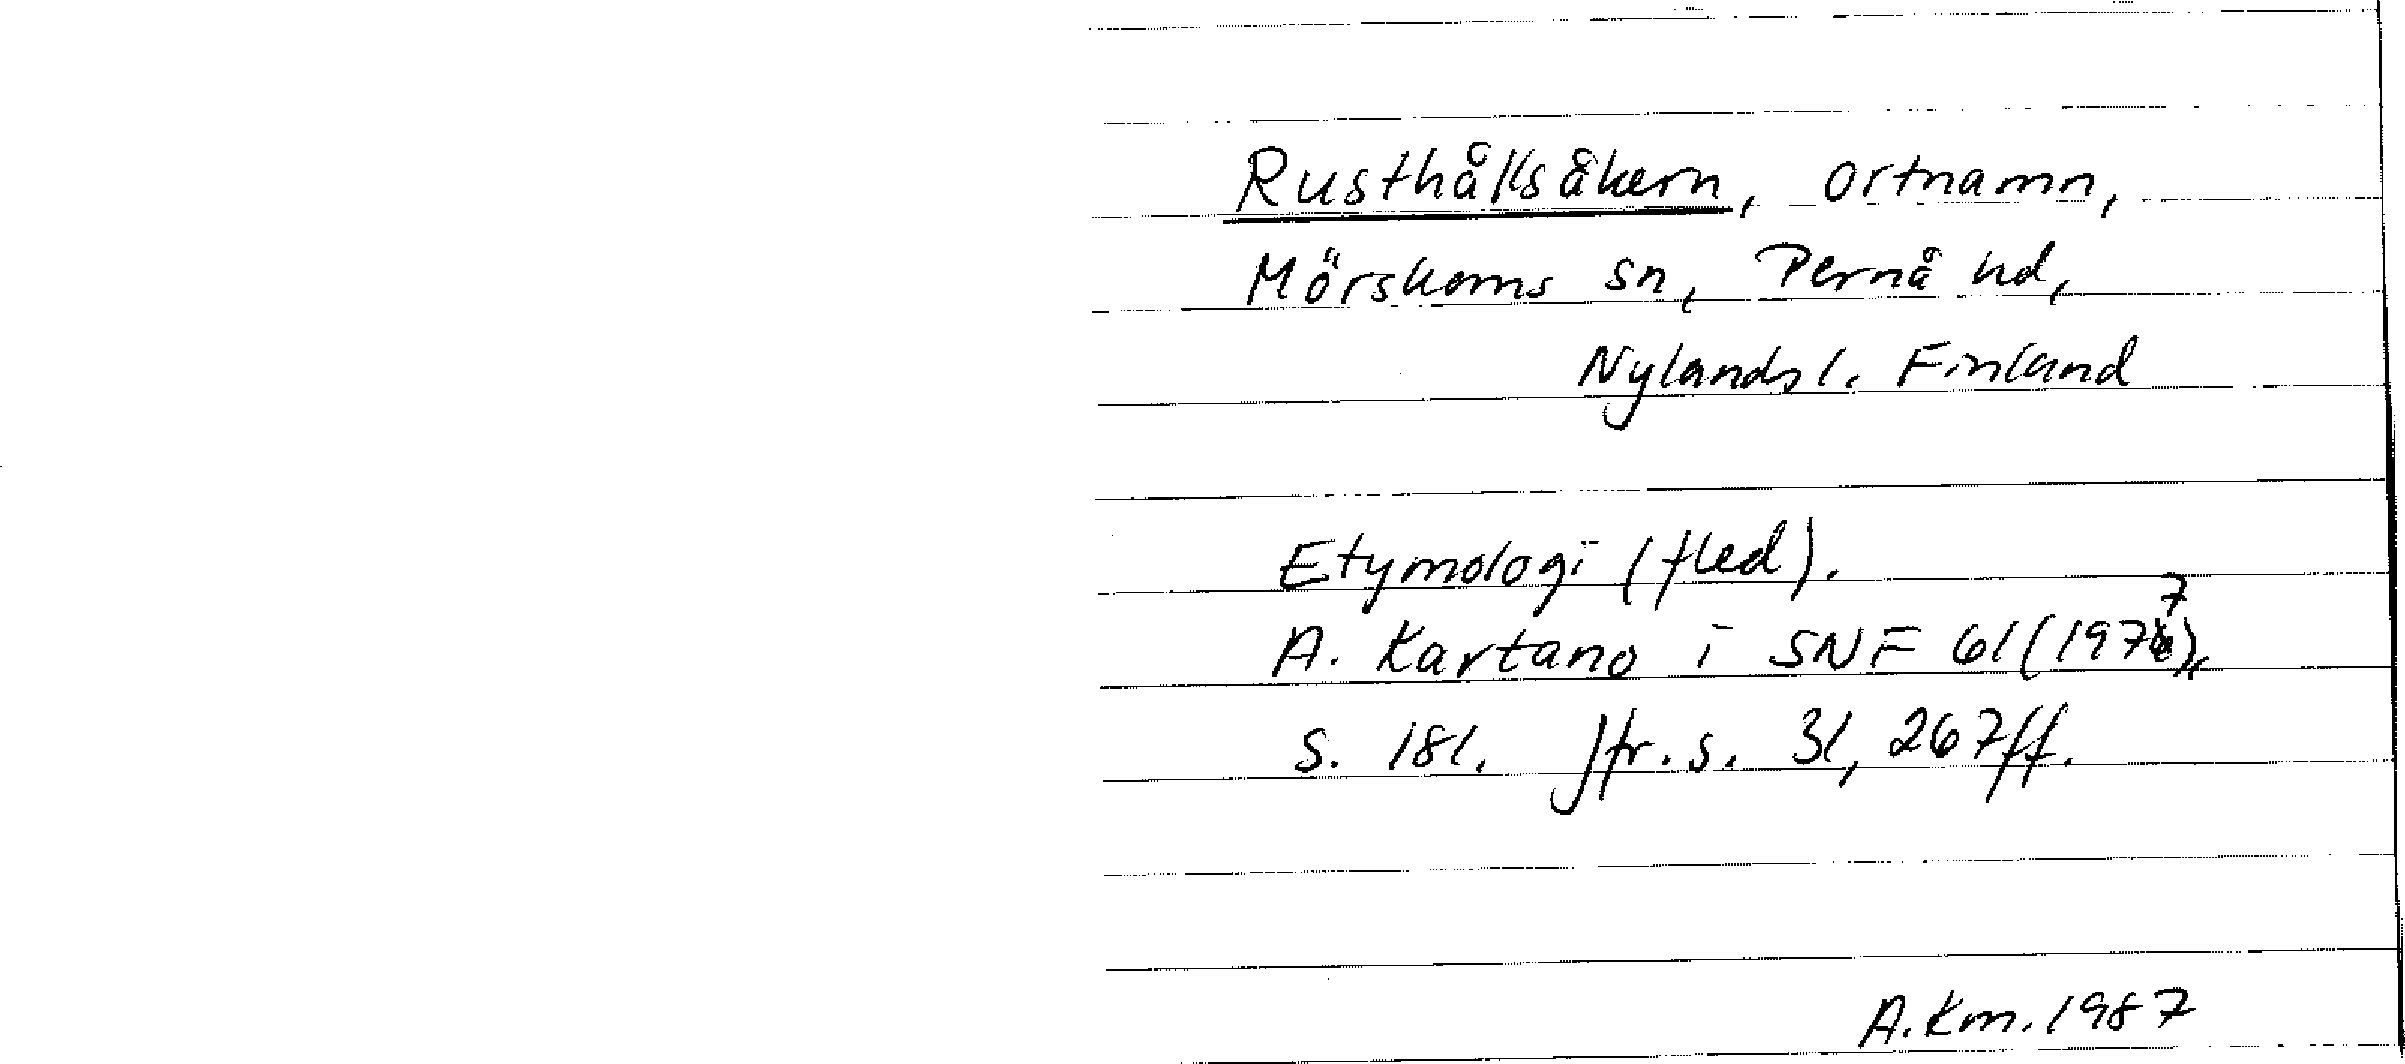 Rusthållsåkern, ortnamn,
Mörskoms sn, Pernå hd,
Nylands l. Finland
Etymologi (fled).
A. Kartano i SNF 61 (1977),
s. 181. Jfr. s. 31, 267ff.
A.Km. 1987